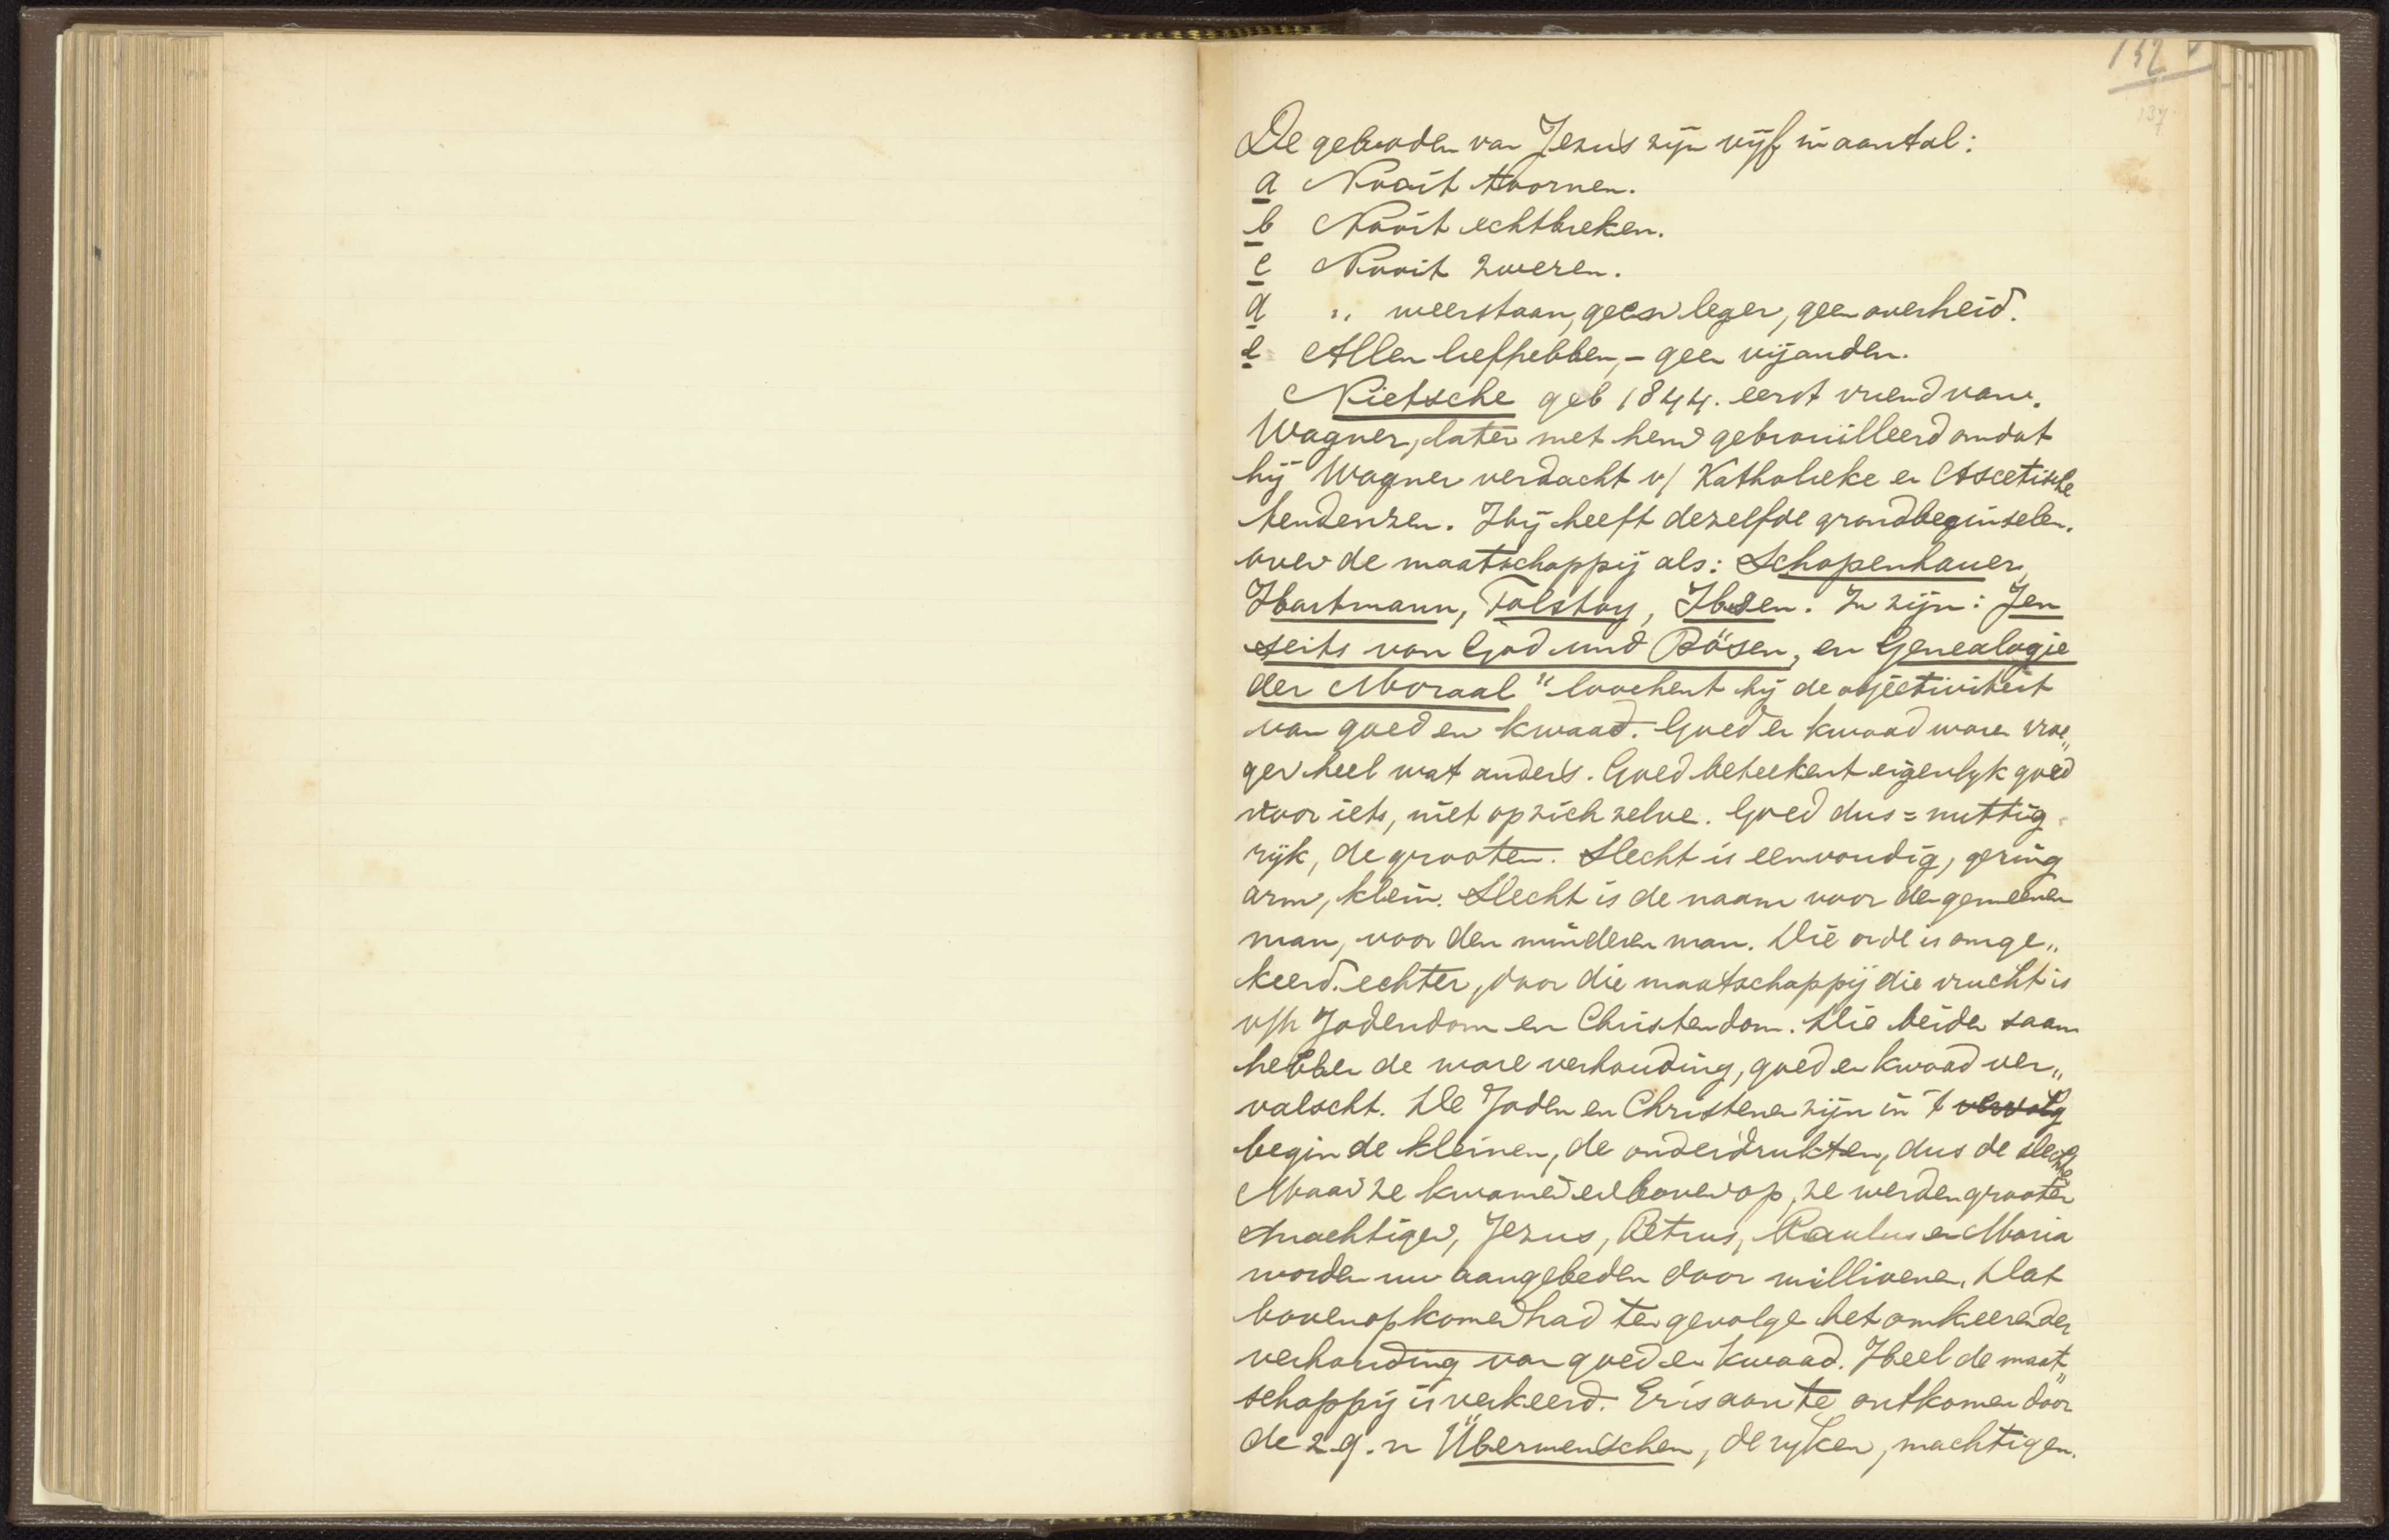 132
137
De geboden van Jezus zijn vijf in aantal:
a Nooit toornen.
b Nooit echtbreken.
c Nooit zweren.
d „ weerstaan, geen leger, geen overheid.
e Allen liefhebben, – geen vijanden.
Nietsche geb 1844. eerst vriend van.
Wagner, later met hem gebrouilleerd omdat
hij Wagner verdacht v/ Katholieke en Ascetische
tendenzen. Hij heeft dezelfde grondbeginselen.
over de maatschappij als: Schopenhauer,
Hartmann, Tolstoy, Ibsen. In zijn: Jen
seits von God und Bösen, en Genealogie
der Moraal" loochent hij de objectiviteit
van goed en kwaad. Goed en kwaad waren vroe„
ger heel wat anders. Goed beteekent eigenlyk goed
voor iets, niet op zich zelve. Goed dus = nuttig
rijk, de grooten. Slecht is eenvoudig, gering
arm, klein. Slecht is de naam voor de gemeenen
man, voor den minderen man. Die orde is omge„
keerd. echter, door die maatschappij die vrucht is
v/h Jodendom en Christendom. Die beiden saam
hebben de ware verhouding, goed en kwaad ver„
valscht. De Joden en Christenen zijn in 't vervolg
begin de kleinen, de onderdrukten, dus de slechte
Maar ze kwamen er bovenop, ze werden grooter
machtiger, Jezus, Petrus, Paulus en Maria
worden nu aangebeden door millioenen. Dat
bovenopkomen had ten gevolge het omkeeren der
verhouding van goed en kwaad. Heel de maat„
schappij is verkeerd. Er is aan te ontkomen door
de z.g.n Übermenschen, de ryken, machtigen.